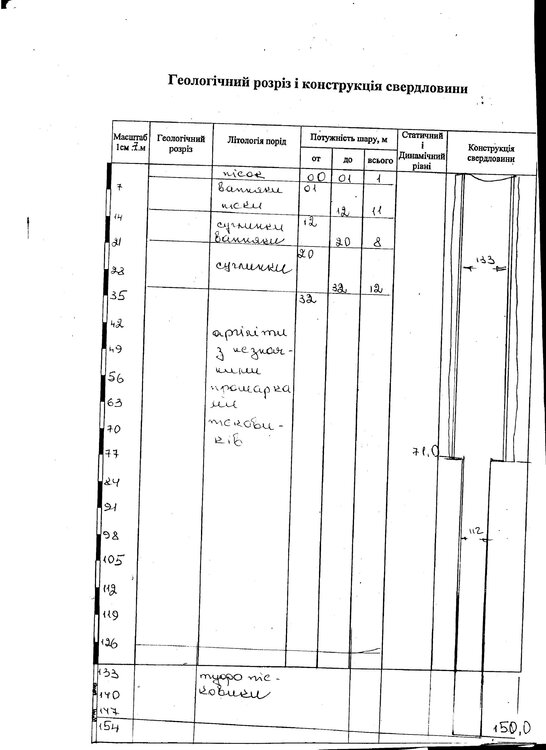 Геологічний розріз і конструкція свердловини
Масштаб 1см 7.м
Геологічний розріз
Літологія порід
Потужність шару, м
від до всього
Статичний і Динамічний рівні
Конструкція свердловини
пісок 00 01 1
7 вапняки 01
піски 12 11
14 суглинки 12
21 вапняки 20 8
20
28 суглинки
32 12
35 32
42 аргіліти
49 з незнач-
ними
56 прошарка
63 ми
70 пісковы-
77 ків
84
91
98
105
112
119
126
133 туфо піс-
140 ковики
147
154
133
71,0
112
150,0